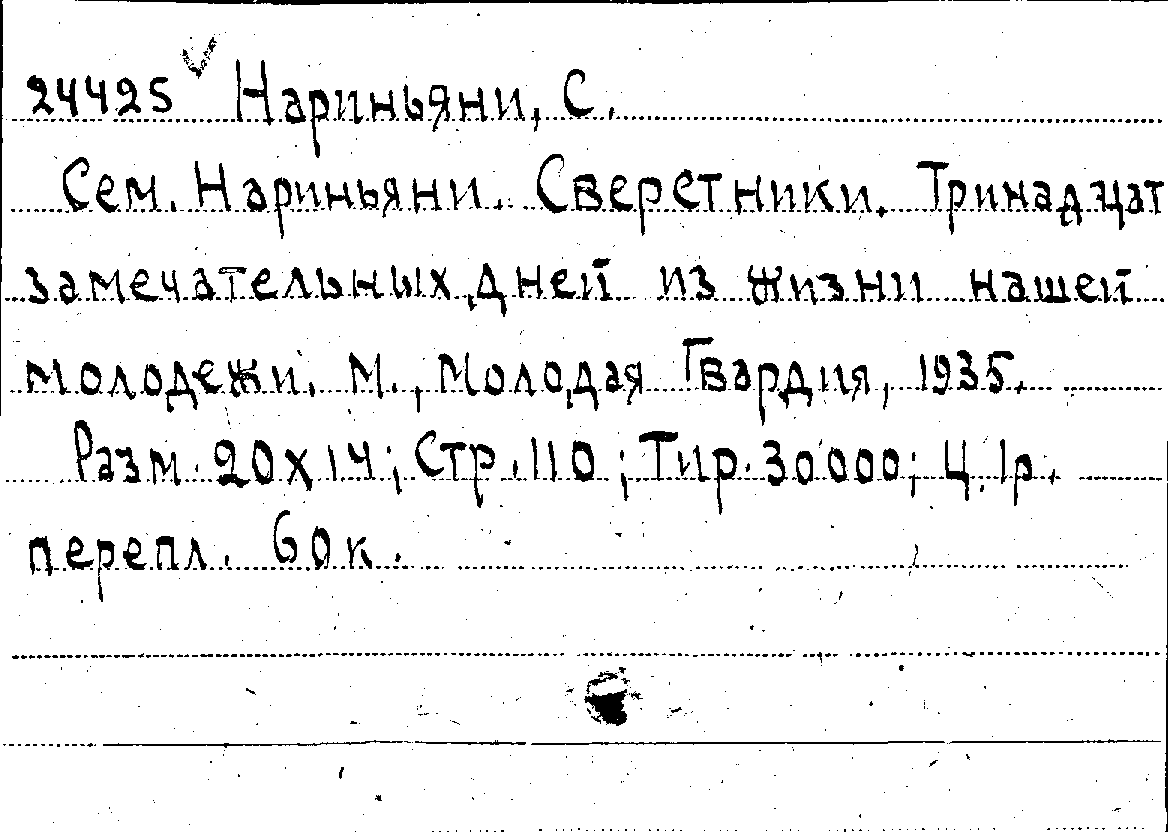 24425 Нариньяни, С.
Сем. Нариньяни. Сверстники. Тринадцат
замечательных дней из жизни нашей
молодежи. М., Молодая Гвардия, 1935.
Разм. 20х14; Стр. 110; Тир. 30000; Ц. 1р.
перепл. 60к.